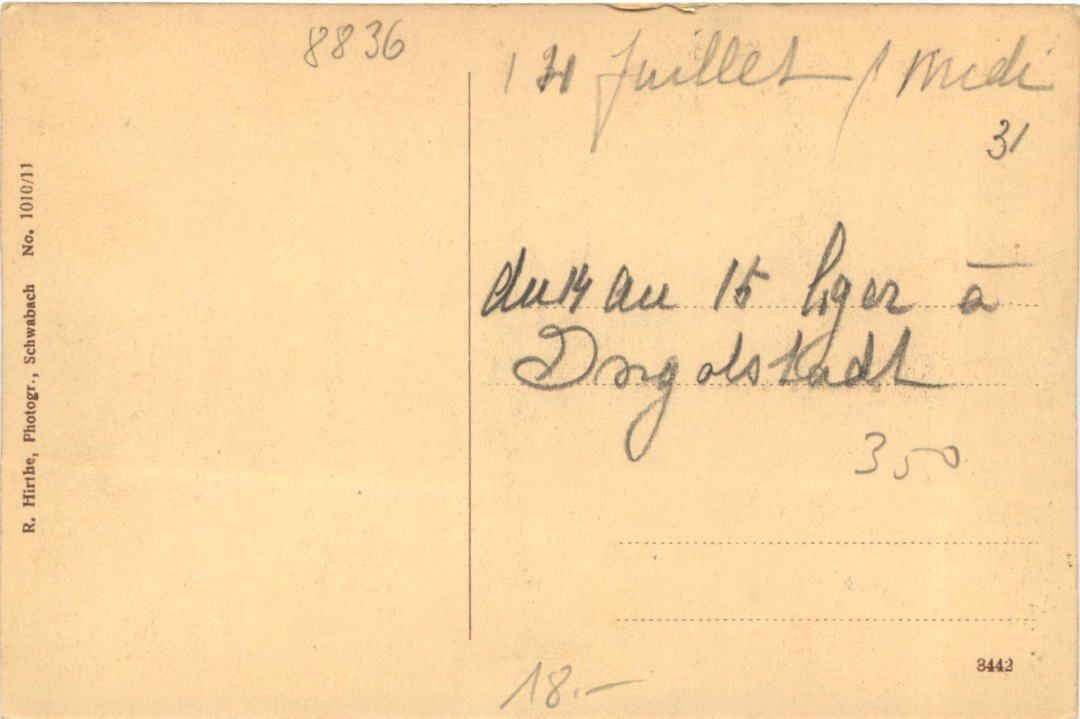 8836
Juillet / Midi
31
du 14 au 15 à
Ingolstadt
350
18.-
R. Hirthe, Photogr., Schwabach No. 1010/11
3442